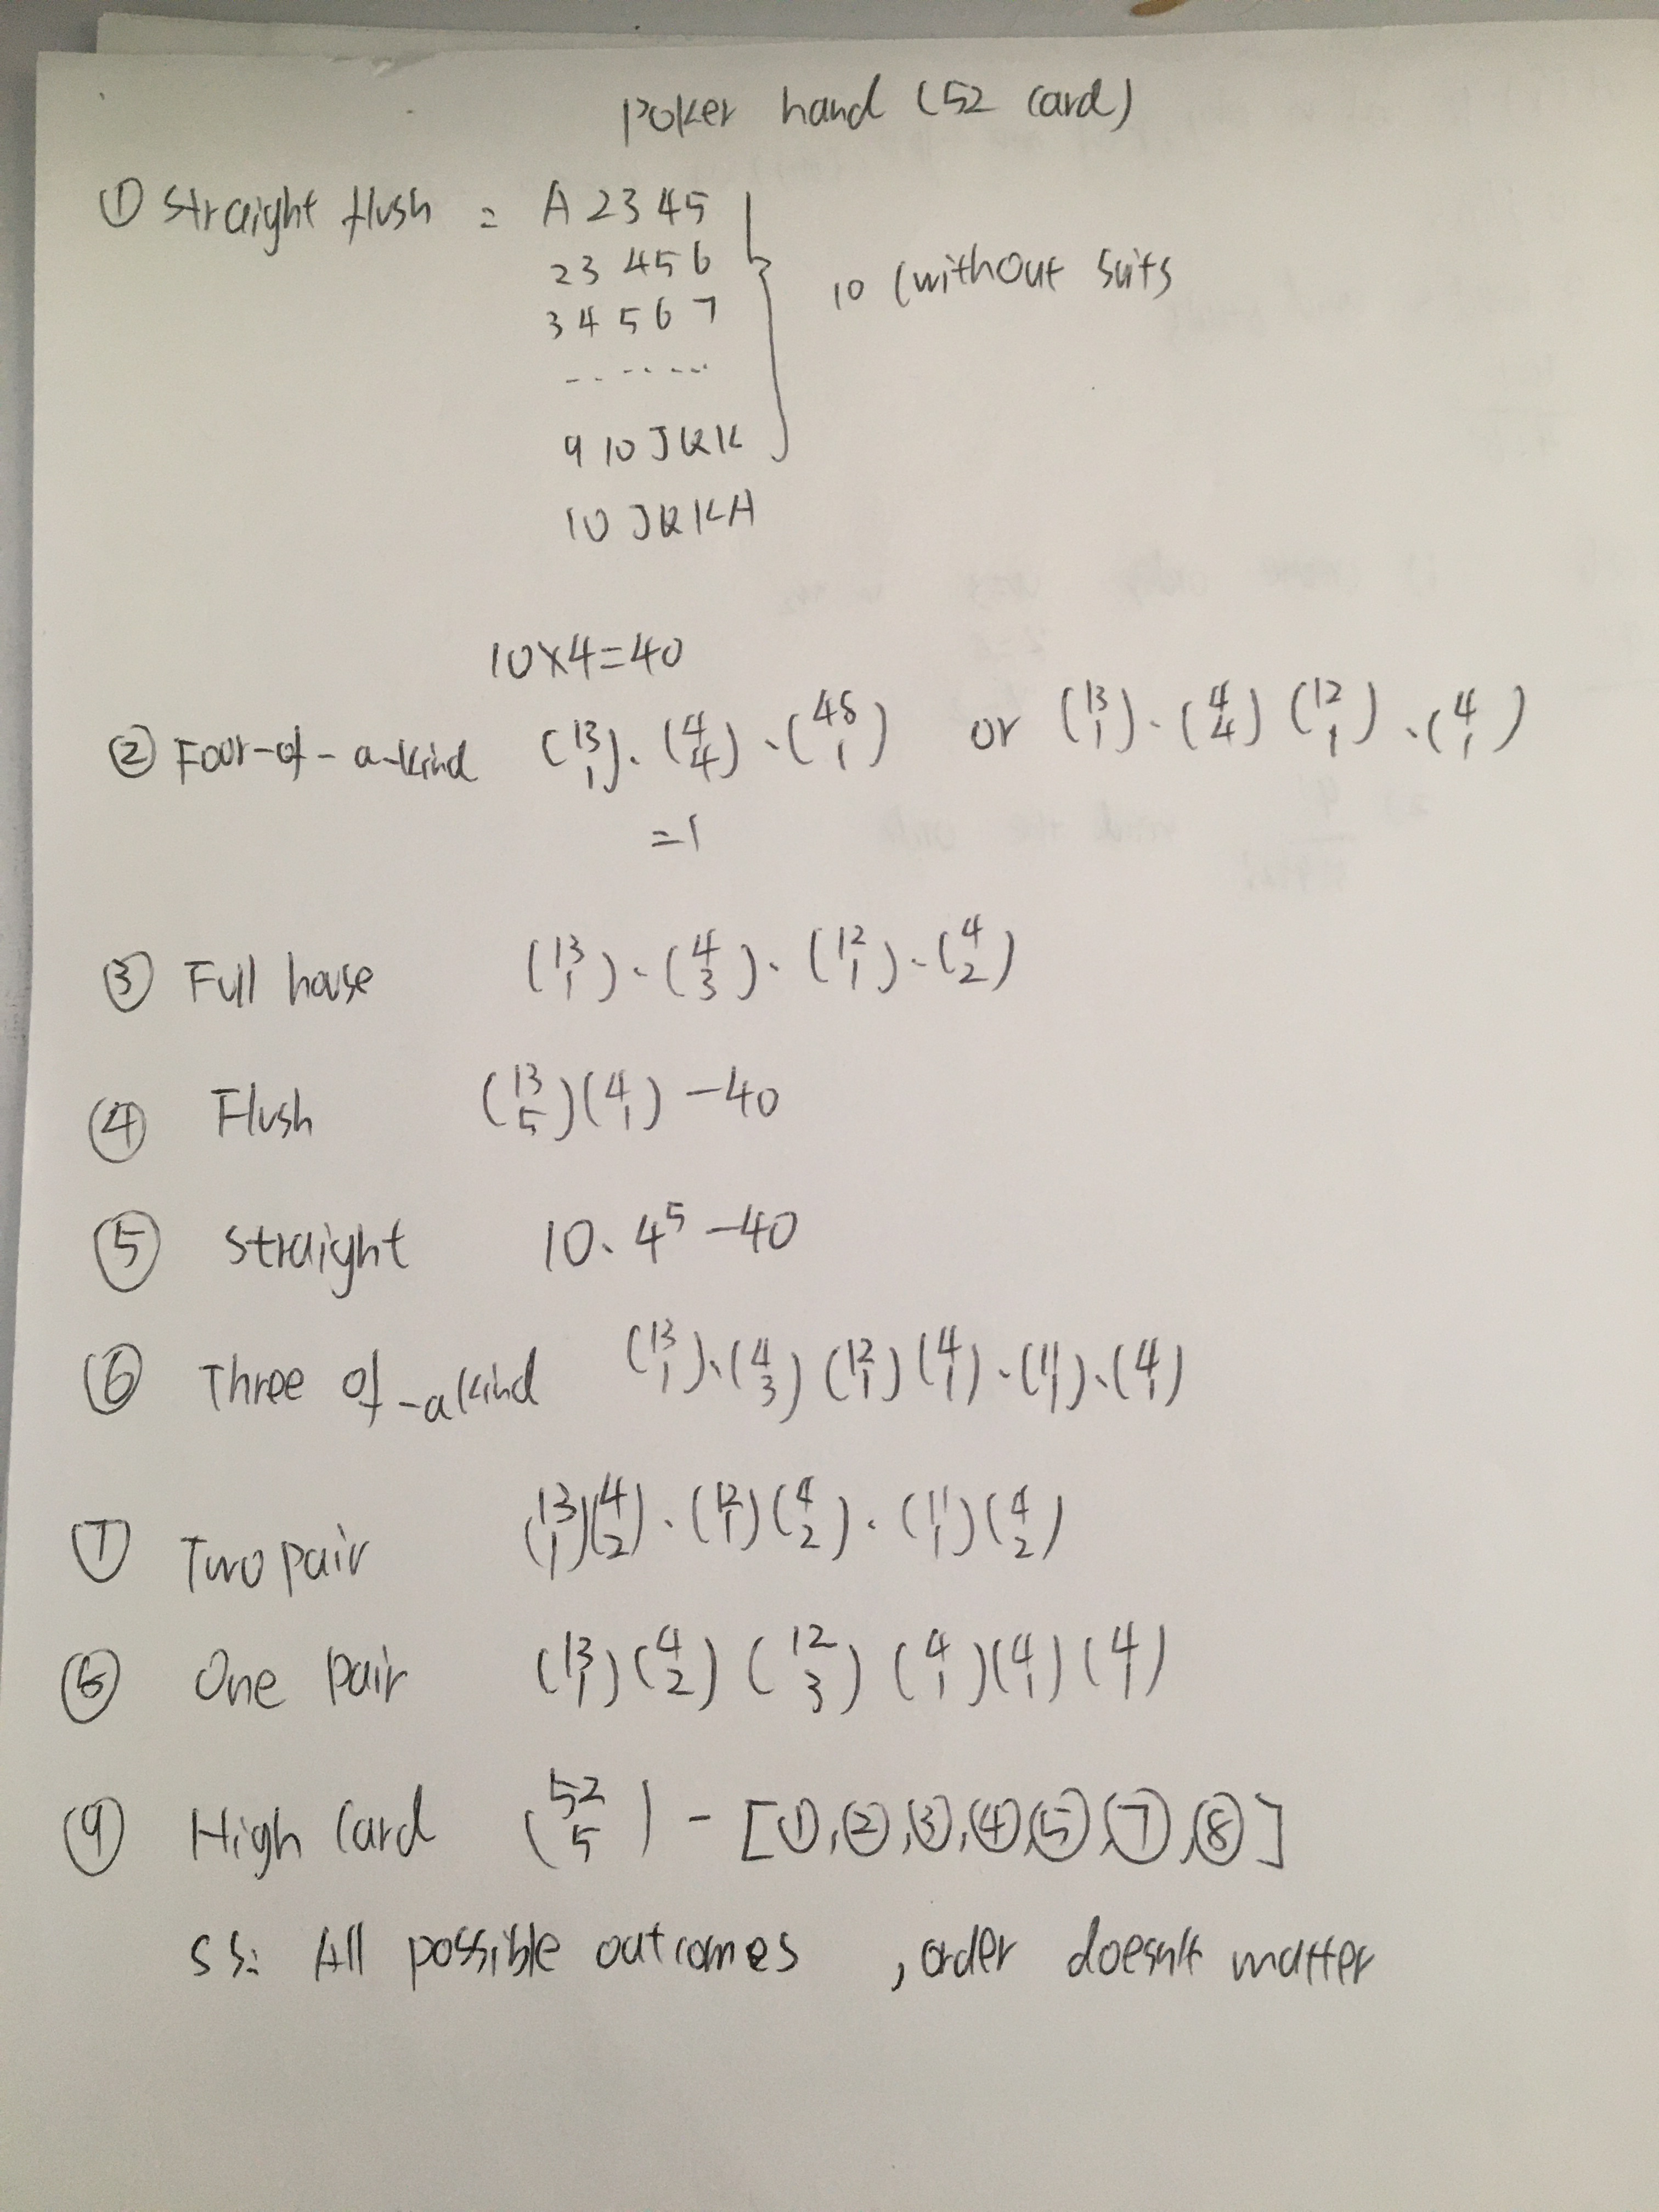 Poker hand (52 card)
① straight flush = A 2 3 4 5
2 3 4 5 6
3 4 5 6 7
10 (without suits
.......
9 10 J Q K
10 J Q K A
10×4=40
② Four-of-a-kind (13 1)·(4 4)·(48 1) or (13 1)·(4 4)(12 1)·(4 1)
=1
③ Full house (13 1)·(4 3)·(12 1)·(4 2)
④ Flush (13 5)(4 1) -40
⑤ straight 10·4⁵-40
⑥ Three of-a kind (13 1)·(4 3)(12 1)(4 1)·(11 1)·(4 1)
⑦ Two pair (13 1)(4 2)·(12 1)(4 2)·(11 1)(4 2)
⑧ One pair (13 1)(4 2)(12 3)(4 1)(4 1)(4 1)
⑨ High Card (52 5) - [①,②,③,④,⑤,⑦,⑧]
SS: All possible outcomes, order doesn't matter